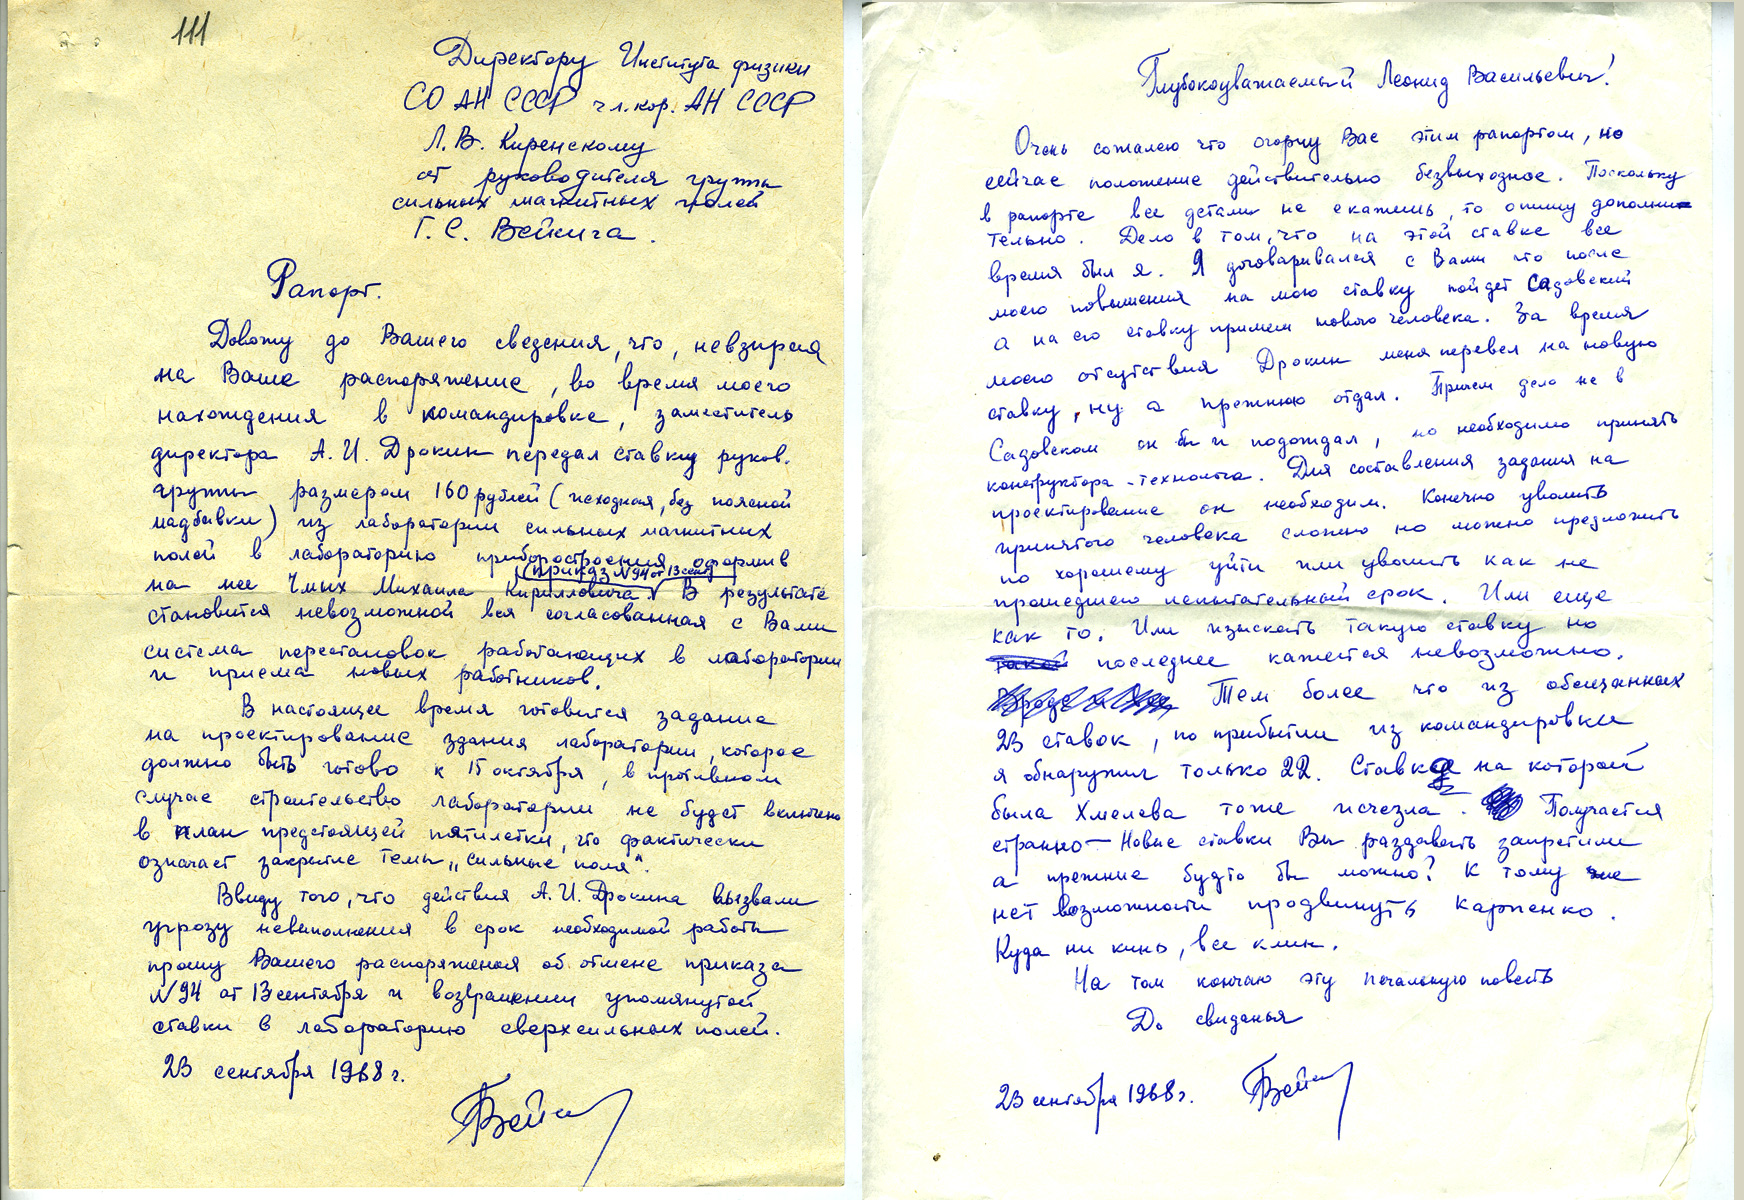 111
Директору Института физики
СО АН СССР чл. кор. АН СССР
Л.В. Киренскому
от руководителя группы
сильных магнитных полей
Г.С. Вейнига.
Рапорт.
Довожу до Вашего сведения, что, невзирая
на Ваше распоряжение, во время моего
нахождения в командировке, заместитель
директора А.И. Дрокин передал ставку руков.
группы размером 160 рублей (исходная, без поясной
надбавки) из лаборатории сильных магнитных
полей в лабораторию приборостроения оформив
(приказ N94 от 13 сент)
на нее Чмых Михаила Кирилловича V В результате
становится невозможной вся согласованная с Вами
система перестановок работающих в лаборатории
и приема новых работников.
В настоящее время готовится задание
на проектирование здания лаборатории, которое
должно быть готово к 15 октября, в противном
случае строительство лаборатории не будет включено
в план предстоящей пятилетки, что фактически
означает закрытие темы „сильные поля“.
Ввиду того, что действия А.И. Дрокина вызвали
угрозу невыполнения в срок необходимой работы
прошу Вашего распоряжения об отмене приказа
N94 от 13 сентября и возвращении упомянутой
ставки в лабораторию сверхсильных полей.
23 сентября 1968 г.
Глубокоуважаемый Леонид Васильевич!
Очень сожалею что огорчу Вас этим рапортом, но
сейчас положение действительно безвыходное. Поскольку
в рапорте все детали не скажешь, то опишу дополни
тельно. Дело в том, что на этой ставке все
время был я. Я договаривался с Вами что после
моего повышения на мою ставку пойдет Садовский
а на его ставку примем нового человека. За время
моего отсутствия Дрокин меня перевел на новую
ставку, ну а прежнюю отдал. Причем дело не в
Садовском он бы и подождал, но необходимо принять
конструктора-технолога. Для составления задания на
проектирование он необходим. Конечно уволить
принятого человека сложно но можно предложить
по хорошему уйти или уволить как не
прошедшего испытательный срок. Или еще
как то. Или изыскать такую ставку но
последнее кажется невозможно.
Тем более что из обещанных
23 ставок, по прибытии из командировки
я обнаружил только 22. Ставка на которой
была Хмелева тоже исчезла. Получается
странно — Новые ставки Вы раздавать запретили
а прежние будто бы можно? К тому же
нет возможности продвинуть Карпенко.
Куда ни кинь, все клин.
На том кончаю эту печальную повесть
До свиданья
23 сентября 1968 г.